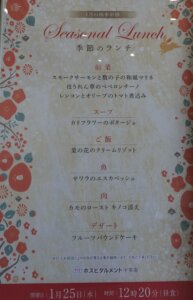 1月の旬菜彩膳
Seasonal Lunch
季節のランチ
前菜
スモークサーモンと数の子の和風マリネ
ほうれん草のペペロンチーノ
レンコンとオリーブのトマト煮込み
スープ
カリフラワーのポタージュ
ご飯
菜の花のクリームリゾット
魚
サワラのエスカベッシュ
肉
カモのロースト キノコ添え
デザート
フルーツパウンドケーキ
ホスピタルメント
開催日 1月25日(水) 時間 12時20分(昼食)